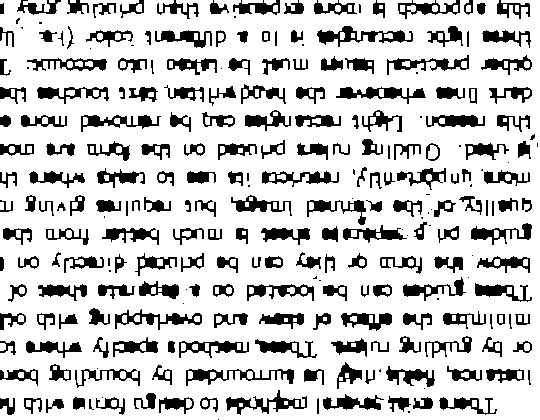 There exist several methods to design forms with fi
instance, fields may be surrounded by bounding box
or by guiding rulers. These methods specify where to
minimize the effect of skew and overlapping with oth
These guides can be located on a separate sheet of
below the form or they can be printed directly on
guides on a separate sheet is much better from the
quality of the scanned image, but requires giving m
more importantly, restricts its use to tasks where th
is used. Guiding rulers printed on the form are mor
this reason. Light rectangles can be removed more e
dark lines whenever the handwritten text touches the
other practical issues must be taken into account: T
these light rectangles is in a different color (i.e. li
this approach is more expensive than printing gray r